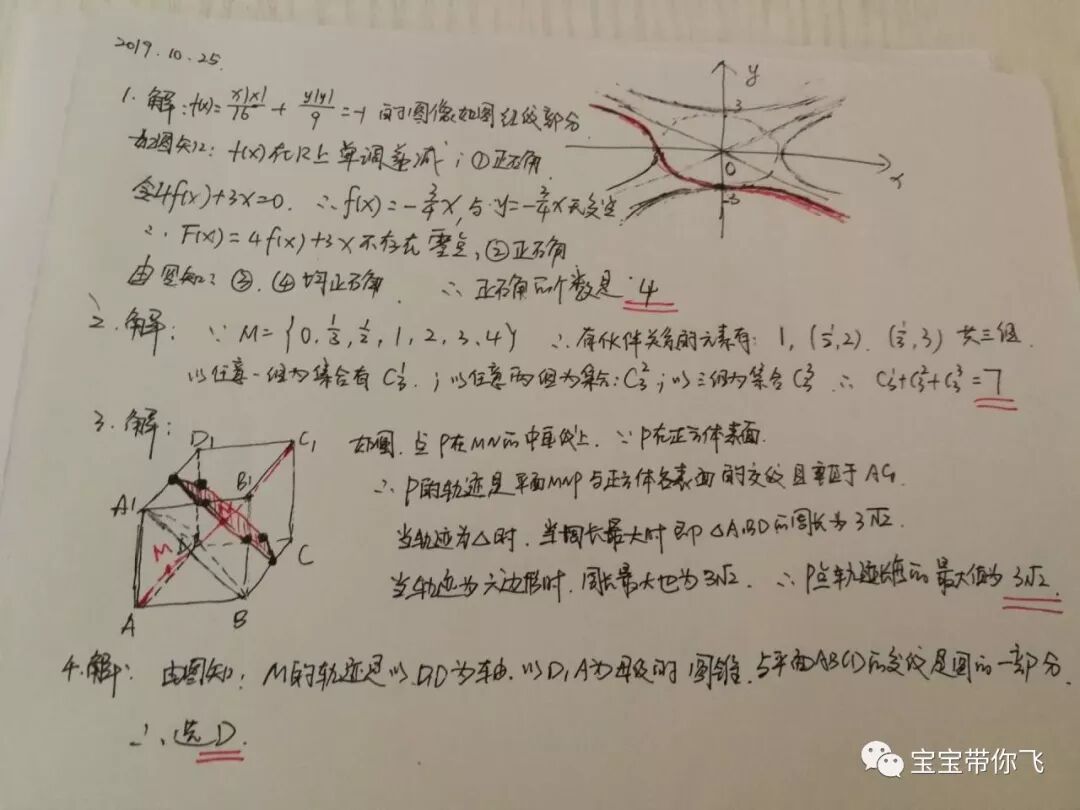 2019.10.25.
1. 解: f(x)= x|x|/16 + y|y|/9 = -1 的图像如图红线部分.
y
3
0
x
-3
如图知: f(x)在R上单调递减; ①正确.
令4f(x)+3x=0. ∴ f(x)= -3/4x, 与 y= -3/4x无交点.
∴ F(x)=4f(x)+3x不存在零点, ②正确
由图知: ③、④均正确. ∴ 正确的个数是: 4
2. 解: ∵ M={0, 1/3, 1/2, 1, 2, 3, 4} ∴ 有伙伴关系的元素有: 1, (1/2, 2), (1/3, 3) 共三组.
以任意一组为集合有 C¹₃; 以任意两组为集合: C²₃; 以三组为集合 C³₃ ∴ C¹₃+C²₃+C³₃=7
3. 解:
D1
C1
A1
B1
D
M
C
A
B
如图. 点P在MN的中垂线上. ∵ P在正方体表面.
∴ P的轨迹是平面MNP与正方体各表面的交线且垂直于AC1
当轨迹为△时. 当周长最大时即 △A1BD的周长为3√2.
当轨迹为六边形时. 周长最大也为3√2. ∴ P点轨迹长度的最大值为3√2.
4. 解: 由图知: M的轨迹是以D1D为轴. 以D1A为母线的圆锥. 与平面ABCD的交线是圆的一部分.
∴ 选D.
宝宝带你飞